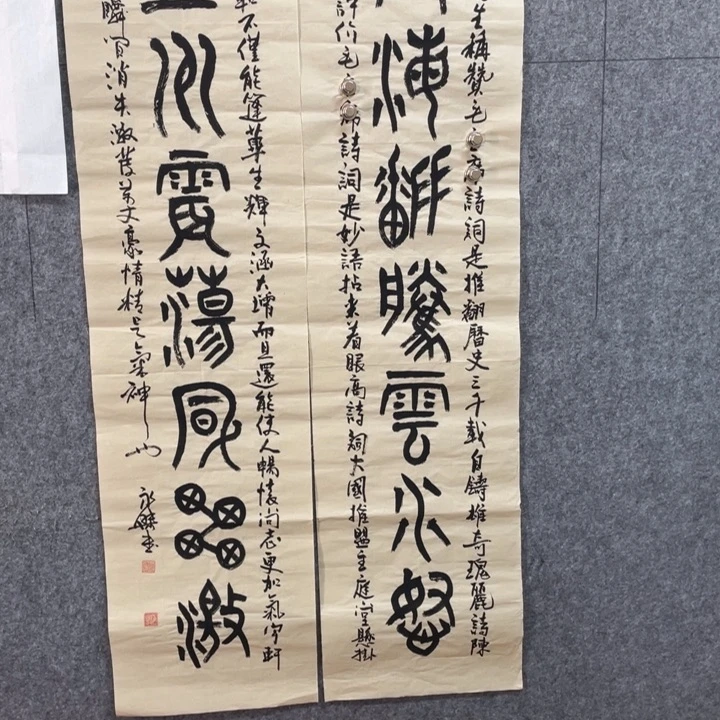 生稱贊毛主席詩詞是推翻曆史三千載自鑄雄奇瑰麗詩陳
海翻騰雲水怒
評價毛主席詩詞是妙語拈來着眼高詩詞大國推盟主庭堂懸掛
不僅能篷蓽生輝文涵大增而且還能使人暢懷尚志更加氣宇軒
州震蕩風雷激
瞬間消失激發萬丈豪情精氣神也
永書